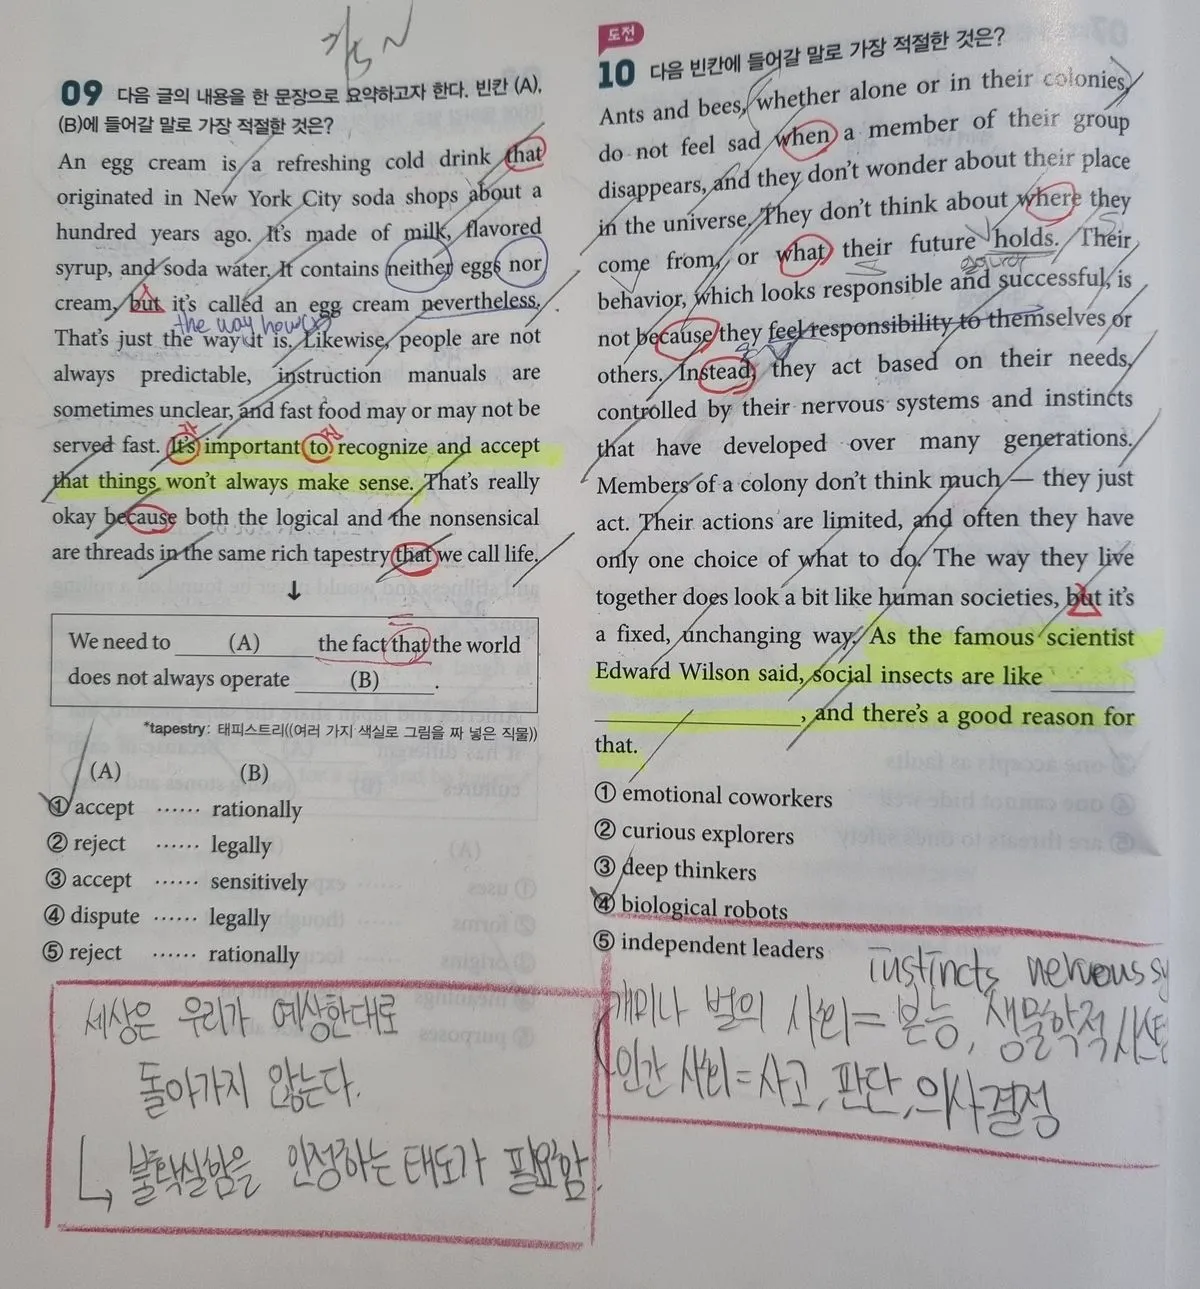 가S N
09 다음 글의 내용을 한 문장으로 요약하고자 한다. 빈칸 (A),
(B)에 들어갈 말로 가장 적절한 것은?
An egg cream is a refreshing cold drink that
originated in New York City soda shops about a
hundred years ago. It's made of milk, flavored
syrup, and soda water. It contains neither eggs nor
cream, but it's called an egg cream nevertheless.
the way how
That's just the way it is. Likewise, people are not
always predictable, instruction manuals are
sometimes unclear, and fast food may or may not be
가 진
served fast. It's important to recognize and accept
that things won't always make sense. That's really
okay because both the logical and the nonsensical
are threads in the same rich tapestry that we call life.
↓
We need to ______ (A) ______ the fact that the world
does not always operate ______ (B) ______.
*tapestry: 태피스트리((여러 가지 색실로 그림을 짜 넣은 직물))
(A) (B)
① accept ······ rationally
② reject ······ legally
③ accept ······ sensitively
④ dispute ······ legally
⑤ reject ······ rationally
세상은 우리가 예상한대로
돌아가지 않는다.
불확실함을 인정하는 태도가 필요함.
도전
10 다음 빈칸에 들어갈 말로 가장 적절한 것은?
Ants and bees, whether alone or in their colonies,
do not feel sad when a member of their group
disappears, and they don't wonder about their place
in the universe. They don't think about where they
come from, or what their future holds. Their
S V S
behavior, which looks responsible and successful, is
not because they feel responsibility to themselves or
others. Instead, they act based on their needs,
controlled by their nervous systems and instincts
that have developed over many generations.
Members of a colony don't think much — they just
act. Their actions are limited, and often they have
only one choice of what to do. The way they live
together does look a bit like human societies, but it's
a fixed, unchanging way. As the famous scientist
Edward Wilson said, social insects are like ______
______, and there's a good reason for
that.
① emotional coworkers
② curious explorers
③ deep thinkers
④ biological robots
⑤ independent leaders
instincts nervous sy
개미나 벌의 사회 = 본능, 생물학적 시스템
인간 사회 = 사고, 판단, 의사결정